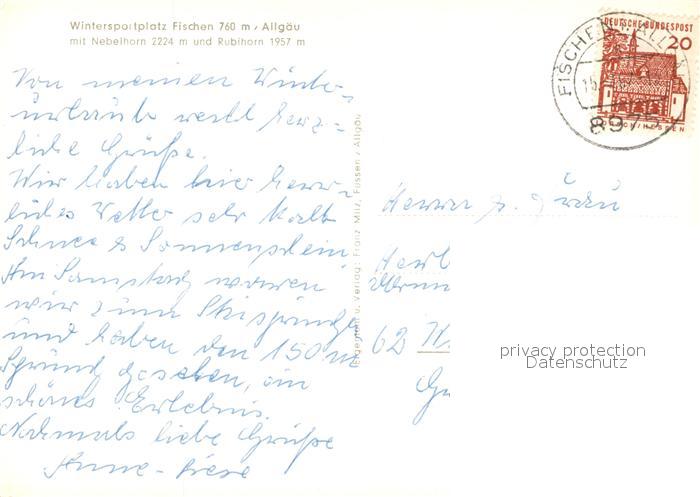 Wintersportplatz Fischen 760 m, Allgäu
mit Nebelhorn 2224 m und Rubihorn 1957 m
Von meinen Winter-
urlaub recht herz-
liche Grüße.
Wir haben hier herr-
liches Wetter sehr kalt
Schnee & Sonnenschein
Am Samstag waren
wir zum Skispringen
und haben den 150 m
Sprung gesehen, ein
schönes Erlebnis.
Nochmals liebe Grüße
Anne-
Eigentum u. Verlag: Franz Milz, Füssen, Allgäu
DEUTSCHE BUNDESPOST
20
FISCHEN
8975
Herrn u.
62
privacy protection
Datenschutz